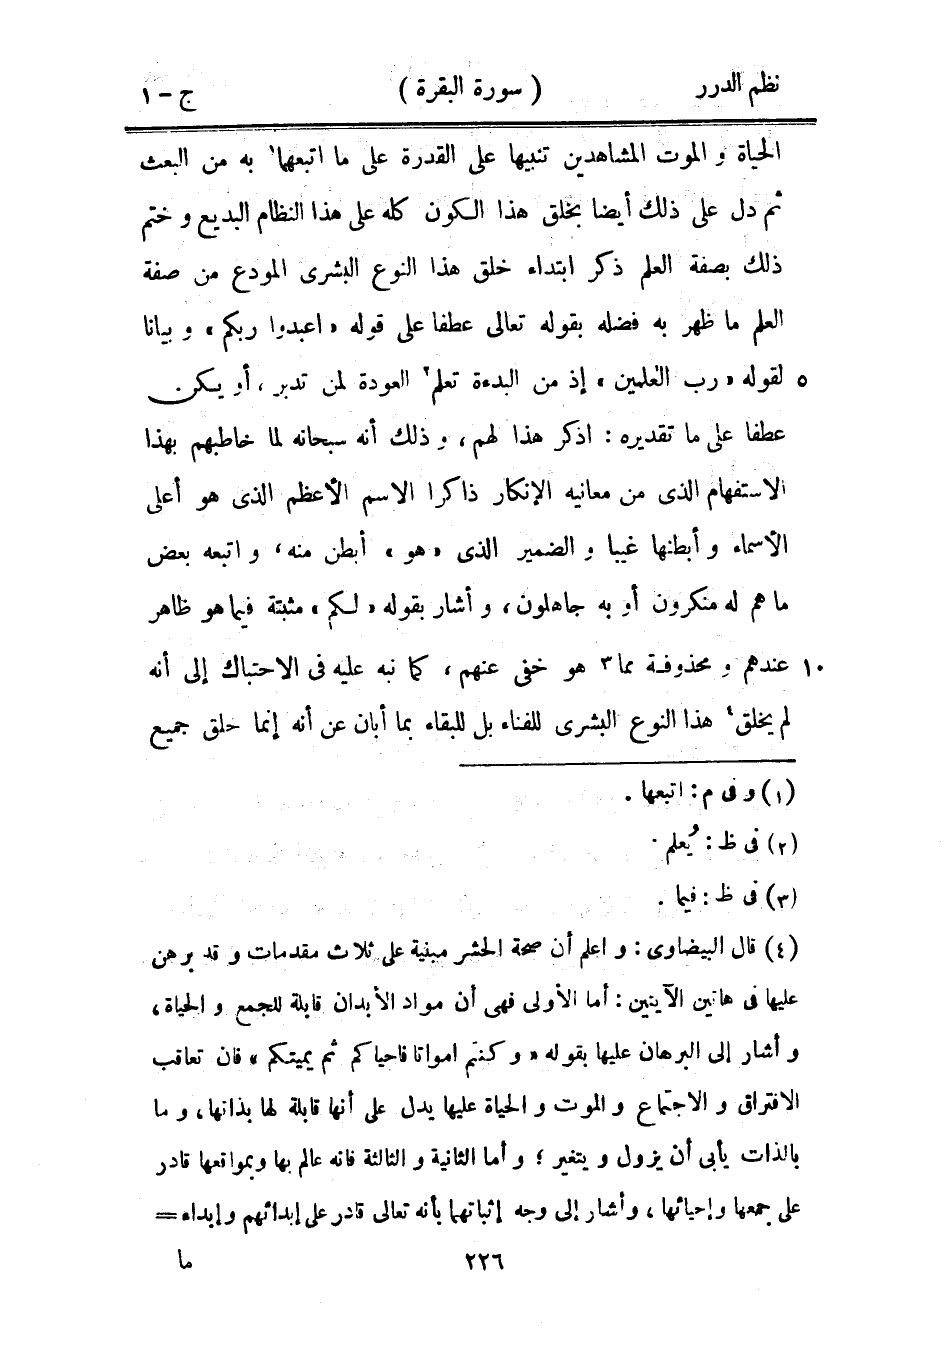 نظم الدرر ( سورة البقرة ) ج - ١
الحياة و الموت المشاهدين تنبيها على القدرة على ما اتبعها١ به من البعث
ثم دل على ذلك أيضا بخلق هذا الكون كله على هذا النظام البديع و ختم
ذلك بصفة العلم ذكر ابتداء خلق هذا النوع البشرى المودع من صفة
العلم ما ظهر به فضله بقوله تعالى عطفا على قوله « اعبدوا ربكم » و بيانا
٥ لقوله « رب العٰلمين » إذ من البدءة تعلم٢ العودة لمن تدبر ، أو يكون
عطفا على ما تقديره : اذكر هذا لهم ، و ذلك أنه سبحانه لما خاطبهم بهذا
الاستفهام الذى من معانيه الإنكار ذاكرا الاسم الأعظم الذى هو أعلى
الأسماء و أبطنها غيبا و الضمير الذى « هو » أبطن منه ، و اتبعه بعض
ما هم له منكرون أو به جاهلون ، و أشار بقوله « لكم » مثبتة فيما هو ظاهر
١٠ عندهم و محذوفة مما٣ هو خفى عنهم ، كما نبه عليه فى الاحتباك إلى أنه
لم يخلق٤ هذا النوع البشرى للفناء بل للبقاء بما أبان عن أنه إنما خلق جميع
(١) و فى م : اتبعها .
(٢) فى ظ : يُعلم .
(٣) فى ظ : فيما .
(٤) قال البيضاوى : و اعلم أن صحة الحشر مبنية على ثلاث مقدمات و قد برهن
عليها فى هاتين الآيتين : أما الأولى فهى أن مواد الأبدان قابلة للجمع و الحياة ،
و أشار إلى البرهان عليها بقوله « و كنتم امواتا فاحياكم ثم يميتكم » فان تعاقب
الافتراق و الاجتماع و الموت و الحياة عليها يدل على أنها قابلة لها بذاتها ، و ما
بالذات يأبى أن يزول و يتغير ؛ و أما الثانية و الثالثة فانه عالم بها وبمواقعها قادر
على جمعها و إحيائها ، و أشار إلى وجه إثباتهما بأنه تعالى قادر على إبدائهم و إبداء =
٢٢٦ ما